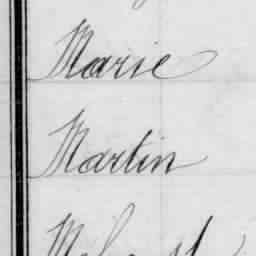 Marie
Martin